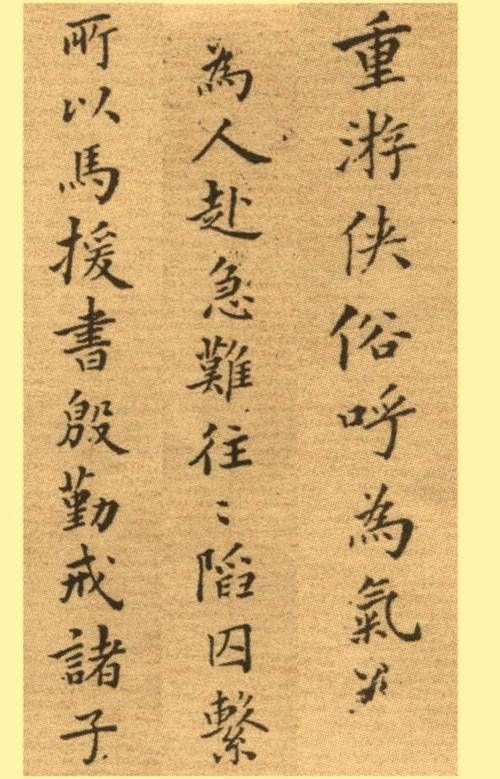 重游俠俗呼為氣義
為人赴急難往〻陷囚繫
所以馬援書殷勤戒諸子